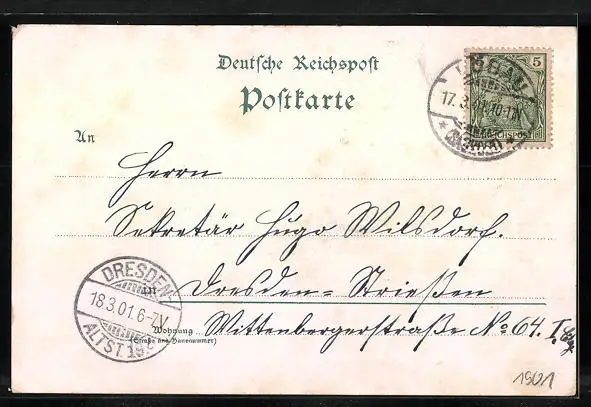 Deutsche Reichspost
Postkarte
5
17.3.01.10-11
REICHSPOST
An
Herrn
Sekretär Hugo Wilsdorf.
in
Dresden-Strießen
Wohnung
(Straße und Hausnummer)
Wittenbergerstraße No 64. I.
DRESDEN-
18.3.01.6-7V
ALTST.
1901